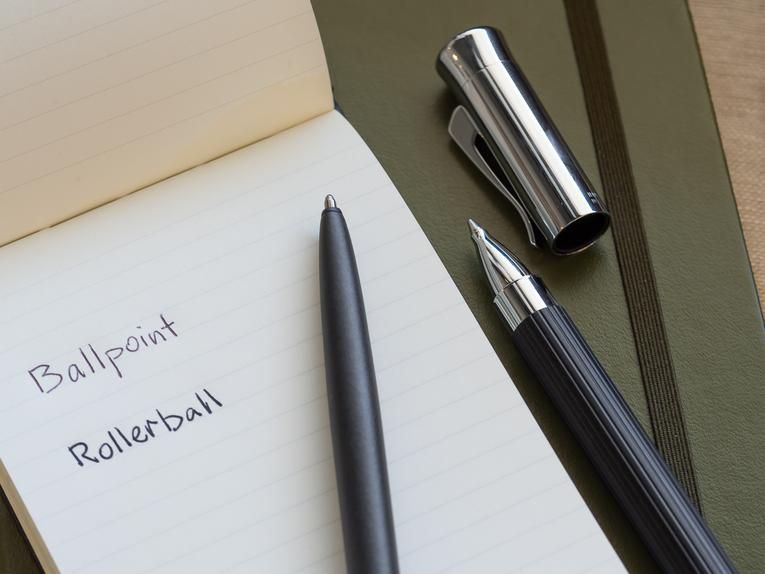 Ballpoint
Rollerball